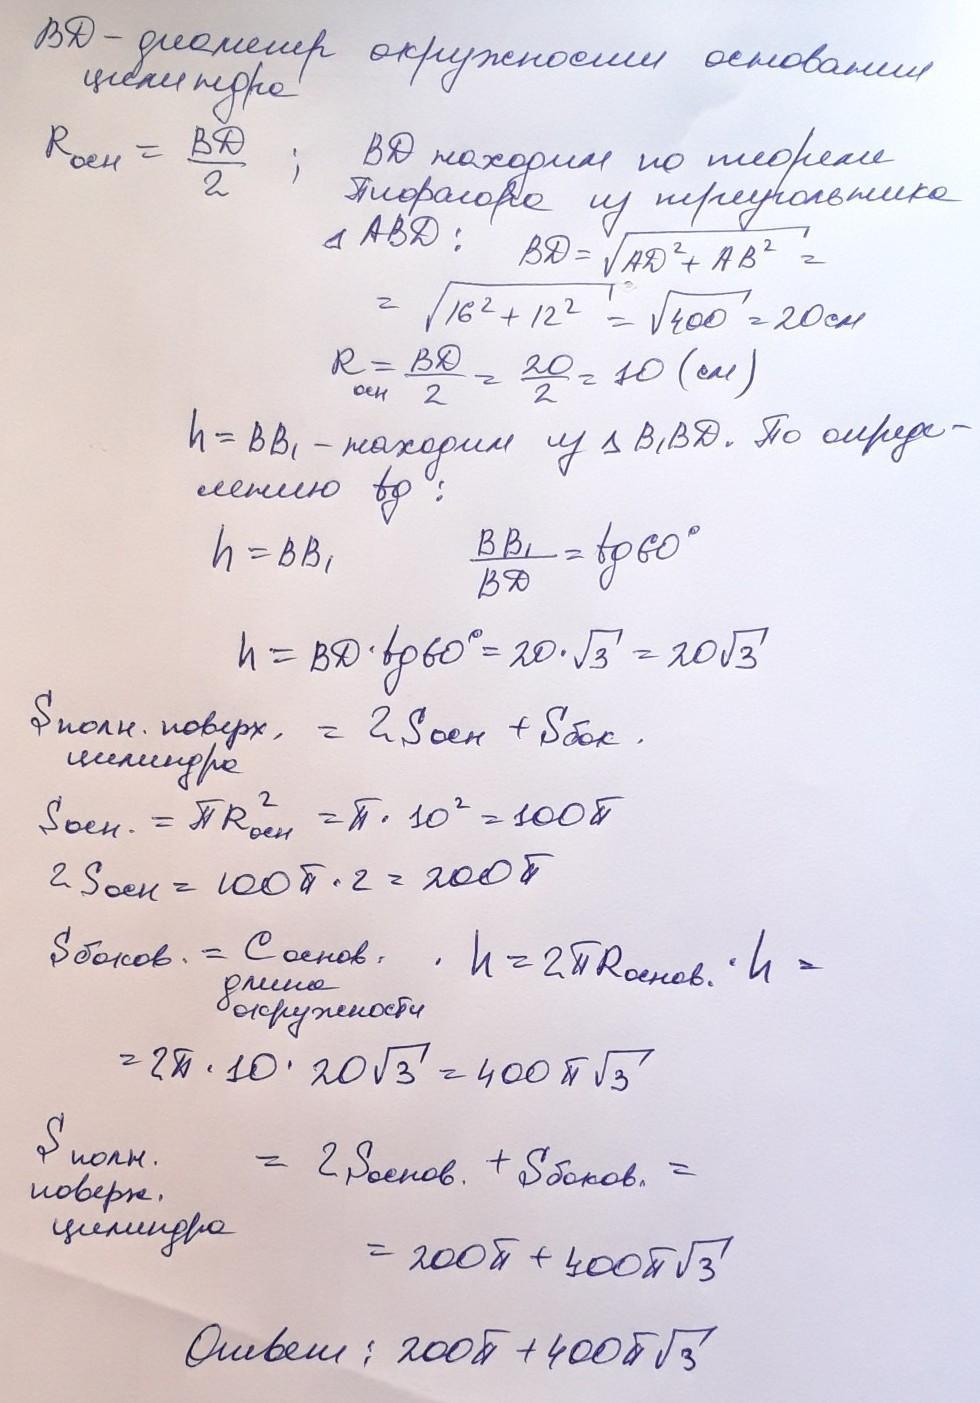 BD - диаметр окружности основания
цилиндра
Rосн = BD/2 ; BD находим по теореме
Пифагора из треугольника
△ ABD: BD = √(AD² + AB²) =
= √(16² + 12²) = √400 = 20 см
Rосн = BD/2 = 20/2 = 10 (см)
h = BB₁ - находим из △ B₁BD. По опреде-
лению tg :
h = BB₁ BB₁/BD = tg60°
h = BD · tg60° = 20 · √3 = 20√3
Sполн. поверх. = 2Sосн + Sбок.
цилиндра
Sосн. = πR²осн = π · 10² = 100π
2Sосн = 100π · 2 = 200π
Sбоков. = Cоснов. · h = 2πRоснов. · h =
длина
окружности
= 2π · 10 · 20√3 = 400π√3
Sполн. = 2Sоснов. + Sбоков. =
поверх.
цилиндра
= 200π + 400π√3
Ответ: 200π + 400π√3